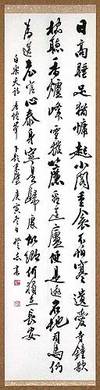 日高睡足猶慵起小閣重衾不怕寒遺愛寺鐘欹
枕聽香爐峰雪撥簾看匡廬便是逃名地司馬仍
為送老官心泰身寧是歸處故鄉何獨在長安
白樂天詩香爐峰下 庚寅冬日 書